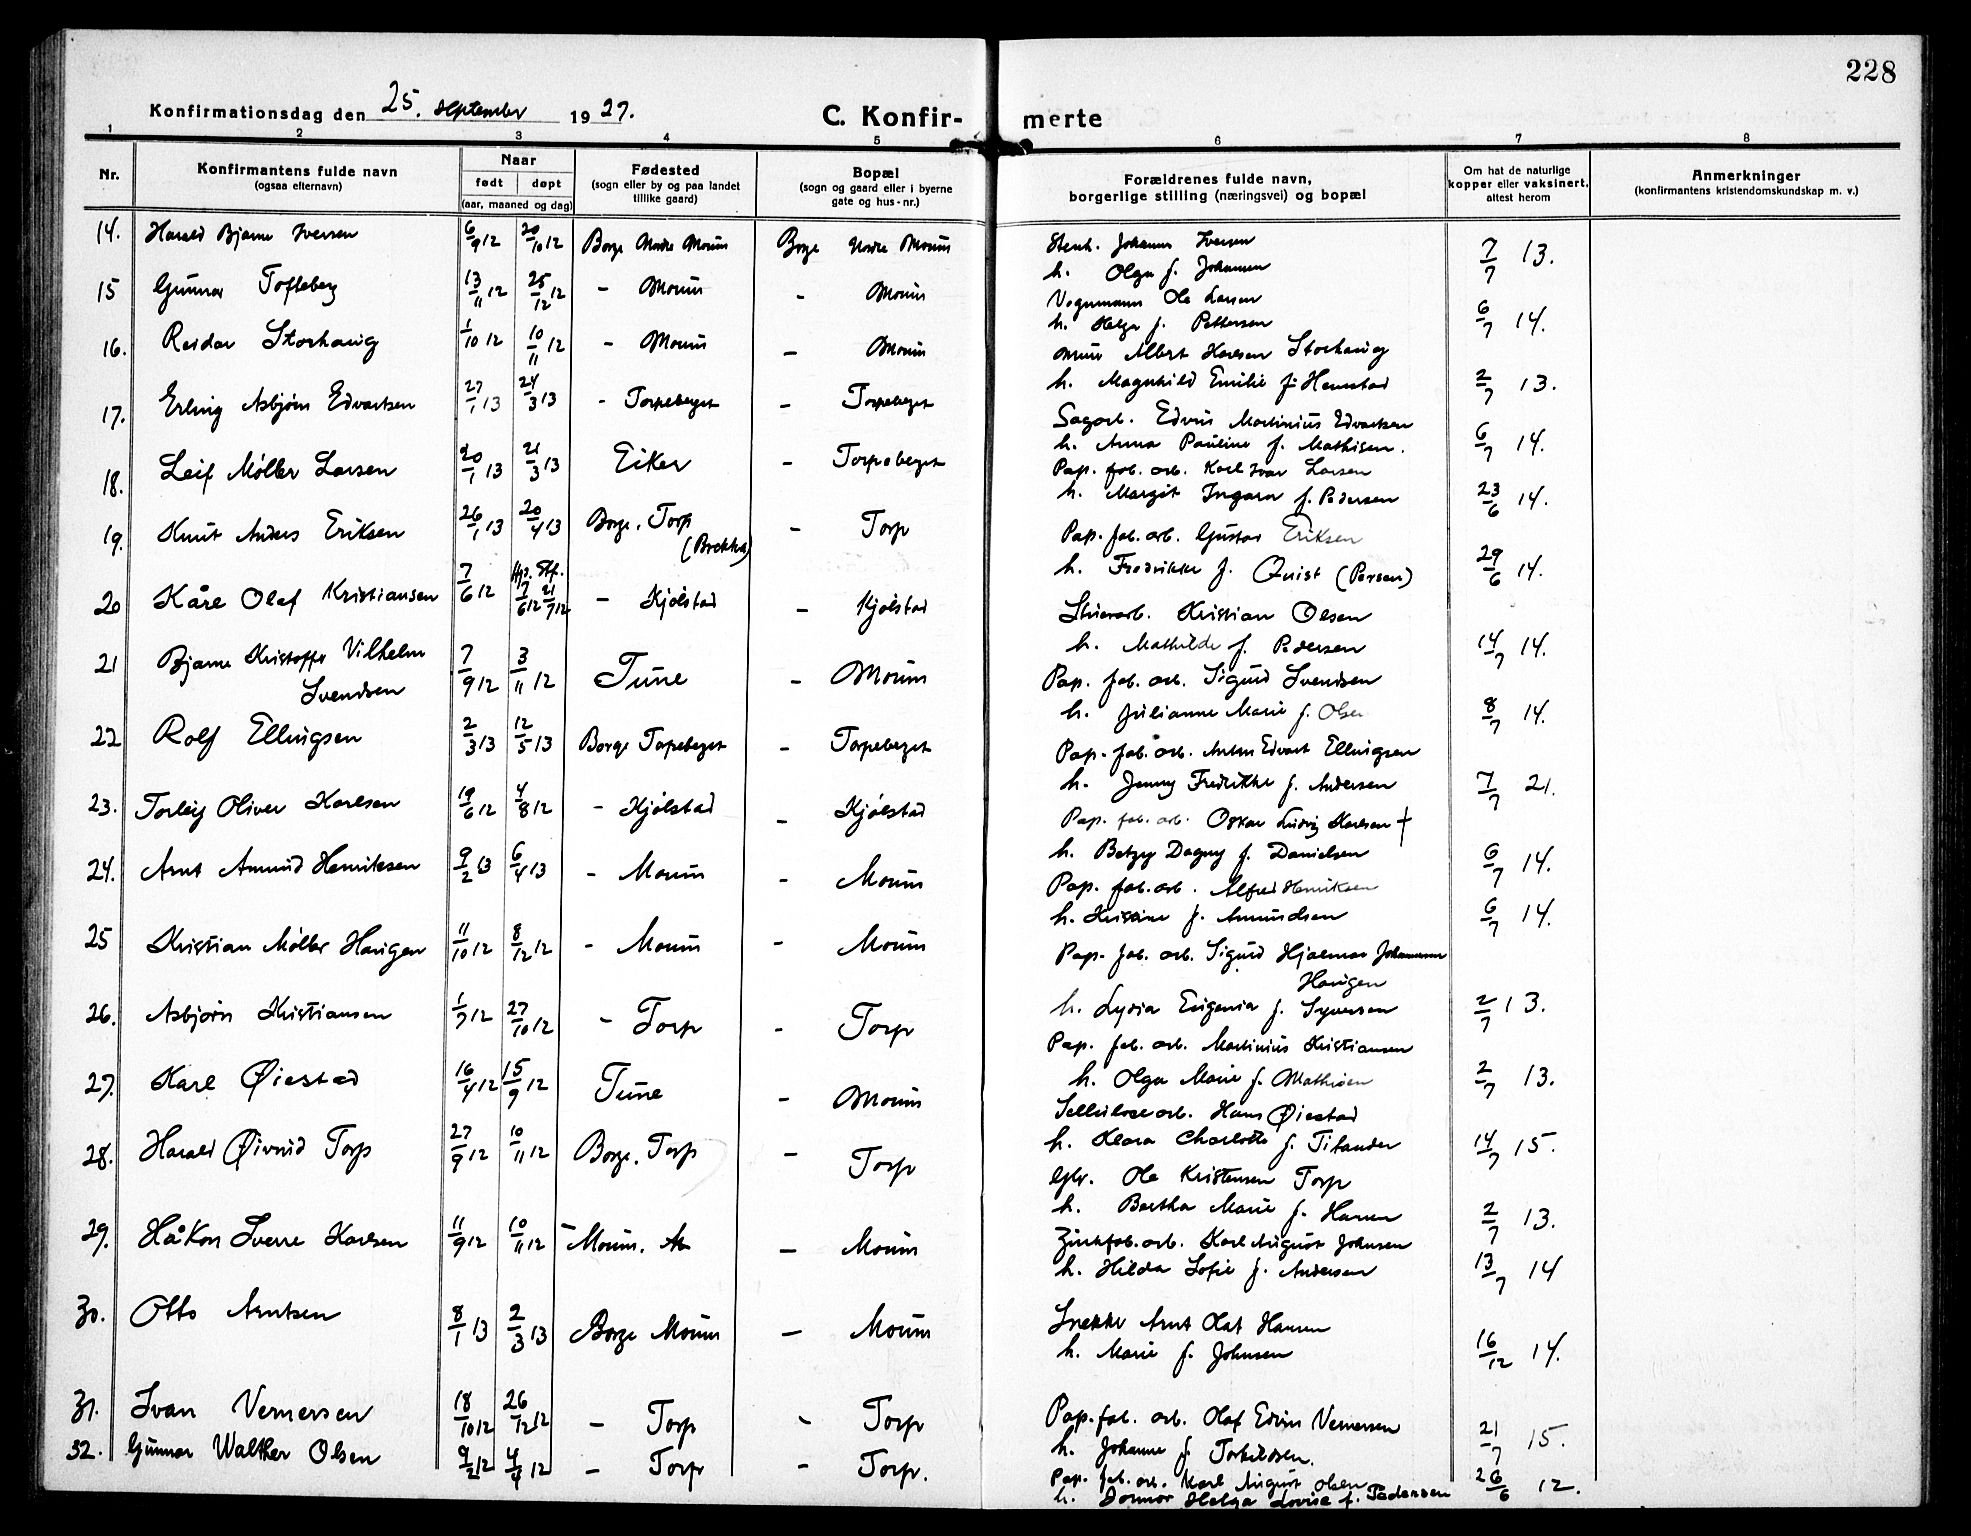 228
Konfirmationsdag den 25. september 1927.
C. Konfir- merte
1 2 3 4 5 6 7 8
Nr.
Konfirmantens fulde navn
(ogsaa efternavn)
Naar
født døpt
(aar, maaned og dag)
Fødested
(sogn eller by og paa landet
tillike gaard)
Bopæl
(sogn og gaard eller i byerne
gate og hus-nr.)
Forældrenes fulde navn,
borgerlige stilling (næringsvei) og bopæl
Om hat de naturlige
kopper eller vaksinert.
attest herom
Anmerkninger
(konfirmantens kristendomskundskap m. v.)
14. Harald Bjarne Iversen 6/9 12 20/10 12 Borge Nordre Moum Borge Nordre Moum
Stenh. Johannes Iversen
h. Olga f. Johansen 7/7 13.
15 Gunnar Tofteberg 13/11 12 25/12 12 - Moum - Moum
Vognmann Ole Larsen
h. Helga f. Pettersen 6/7 14.
16. Reidar Storhaug 1/10 12 10/11 12 - Moum - Moum
Murer Albert Karlsen Storhaug
h. Magnhild Emilie f. Hennstad 2/7 13.
17. Erling Asbjørn Edvartsen 27/1 13 24/3 13 - Torpeberget - Torpeberget
Sagarb. Edvin Martinius Edvartsen
h. Anna Pauline f. Mathisen. 6/7 14.
18. Leif Møller Larsen 20/1 13 21/3 13 Eiker - Torpeberget
Pap. fab. arb. Karl Ivar Larsen
h. Margit Ingara f. Pedersen 23/6 14.
19. Knut Anders Eriksen 26/1 13 20/4 13 Borge, Torp (Brekka) - Torp
Pap. fab. arb. Gustav Eriksen
h. Fredrikke f. Quist (Persen) 29/6 14.
20 Kåre Olaf Kristiansen 7/6 12 Hjd. 7/6 12 Stf. 21/7 12 - Kjølstad - Kjølstad
Skiverarb. Kristian Olsen
h. Mathilde f. Pedersen 14/7 14.
21 Bjarne Kristoffer Vilhelm
Svendsen 7/9 12 3/11 12 Tune - Moum
Pap. fab. arb. Sigurd Svendsen
h. Julianne Marie f. Olsen 8/7 14.
22 Rolf Ellingsen 2/3 13 12/5 13 Borge Torpeberget - Torpeberget
Pap. fab. arb. Anton Edvart Ellingsen
h. Jenny Fredrikke f. Andersen 7/7 21.
23. Torleif Oliver Karlsen 19/6 12 4/8 12 - Kjølstad - Kjølstad
Pap. fab. arb. Oskar Ludvig Karlsen +
h. Betzy Dagny f. Danielsen 6/7 14.
24. Arnt Amund Henriksen 9/2 13 6/4 13 - Moum - Moum
Pap. fab. arb. Alfred Henriksen
h. Kristine f. Amundsen 6/7 14.
25 Kristian Møller Haugen 11/10 12 8/12 12 - Moum - Moum
Pap. fab. arb. Sigurd Hjalmar Johannesen
Haugen
h. Lydia Eugenia f. Syversen 2/7 13.
26. Asbjørn Kristiansen 1/7 12 27/10 12 - Torp - Torp
Pap. fab. arb. Martinius Kristiansen
h. Olga Marie f. Mathisen 2/7 13.
27. Karl Øiestad 16/4 12 15/9 12 Tune - Moum
Cellulosearb. Hans Øiestad
h. Klara Charlotte f. Titander 14/7 15.
28. Harald Øivind Torp 27/9 12 10/11 12 Borge, Torp - Torp
Gbr. Ole Kristensen Torp
h. Bertha Marie f. Hansen 2/7 13.
29. Håkon Sverre Karlsen 11/9 12 10/11 12 - Moum. - Moum
Zinkfab. arb. Karl August Johnsen
h. Hilda Sofie f. Andersen 13/7 14
30. Otto Arntsen 8/1 13 2/3 13 Borge Moum - Moum
Snekker Arnt Olaf Hansen
h. Marie f. Johnsen 16/12 14.
31. Ivan Vernersen 18/10 12 26/12 12 - Torp - Torp
Pap. fab. arb. Olaf Edvin Vernersen
h. Johanne f. Torkildsen. 21/7 15.
32. Gunnar Walther Olsen 9/2 12 4/4 12 - Torp - Torp.
Pap. fab. arb. Karl August Olsen
h. Helga Lovise f. Pedersen 26/6 12.